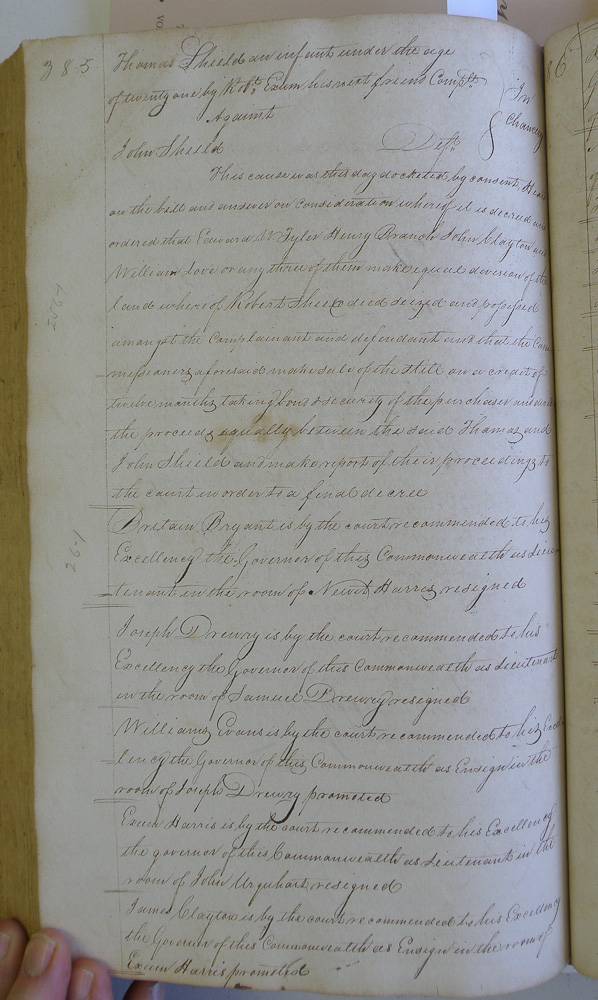 385
Thomas Shield an infant under the age
of twenty one by Robt. Exum his next friend Complt.
Against
In
Chancery
John Shield Deft.
This cause was this day docketed by consent, Heard
on the bill and answer on consideration whereof it is decreed and
ordered that Edward W Tyler Henry Branch John Clayton and
William Love or any three of them make equal division of the
land where of Robert Shield died seized and possessed
amongst the Complainant and defendant and that the Com
missioners aforesaid make sale of the Still on a credit of
twelve months taking bond & security of the purchaser and
the proceeds equally between the said Thomas and
John Shield and make report of their proceedings to
the court in order to a final decree
Britain Bryant is by the court recommended to his
Excellency the Governor of this Commonwealth as Lieu
tenant in the room of Newit Harris resigned
Joseph Drewry is by the court recommended to his
Excellency the Governor of this Commonwealth as Lieutenant
in the room of Samuel Drewry resigned
Williams Evans is by the court recommended to his Excel
lency the Governor of this Commonwealth as Ensign in the
room of Joseph Drewry promoted
Exum Harris is by the court recommended to his Excellency
the governor of this Commonwealth as Lieutenant in the
room of John Urquhart resigned
James Clayton is by the court recommended to his Excellency
the Governor of this Commonwealth as Ensign in the room of
Exum Harris promoted